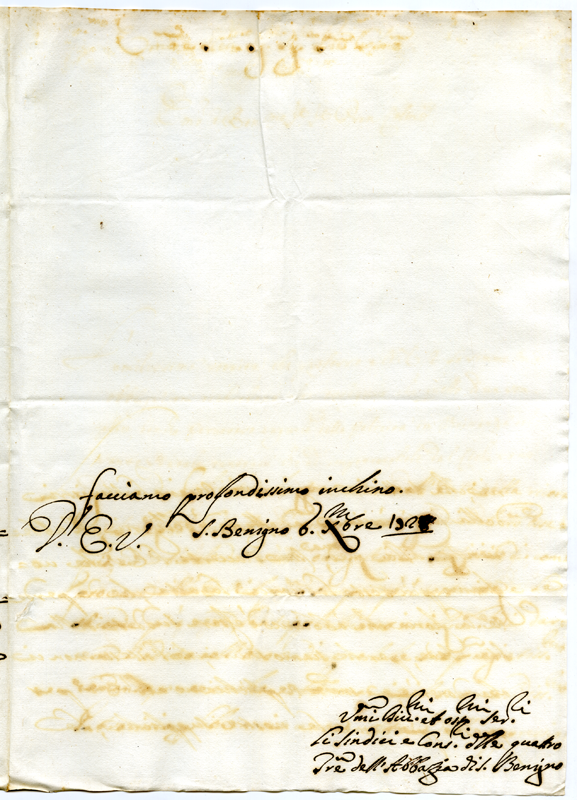 facciamo profondissimo inchino.
D. E. V. S. Benigno 6. Xbre
Umi Divi. et ossi. ser.
Li Sindici e Cons. delle quattro
Tre dell'Abbazia di S. Benigno